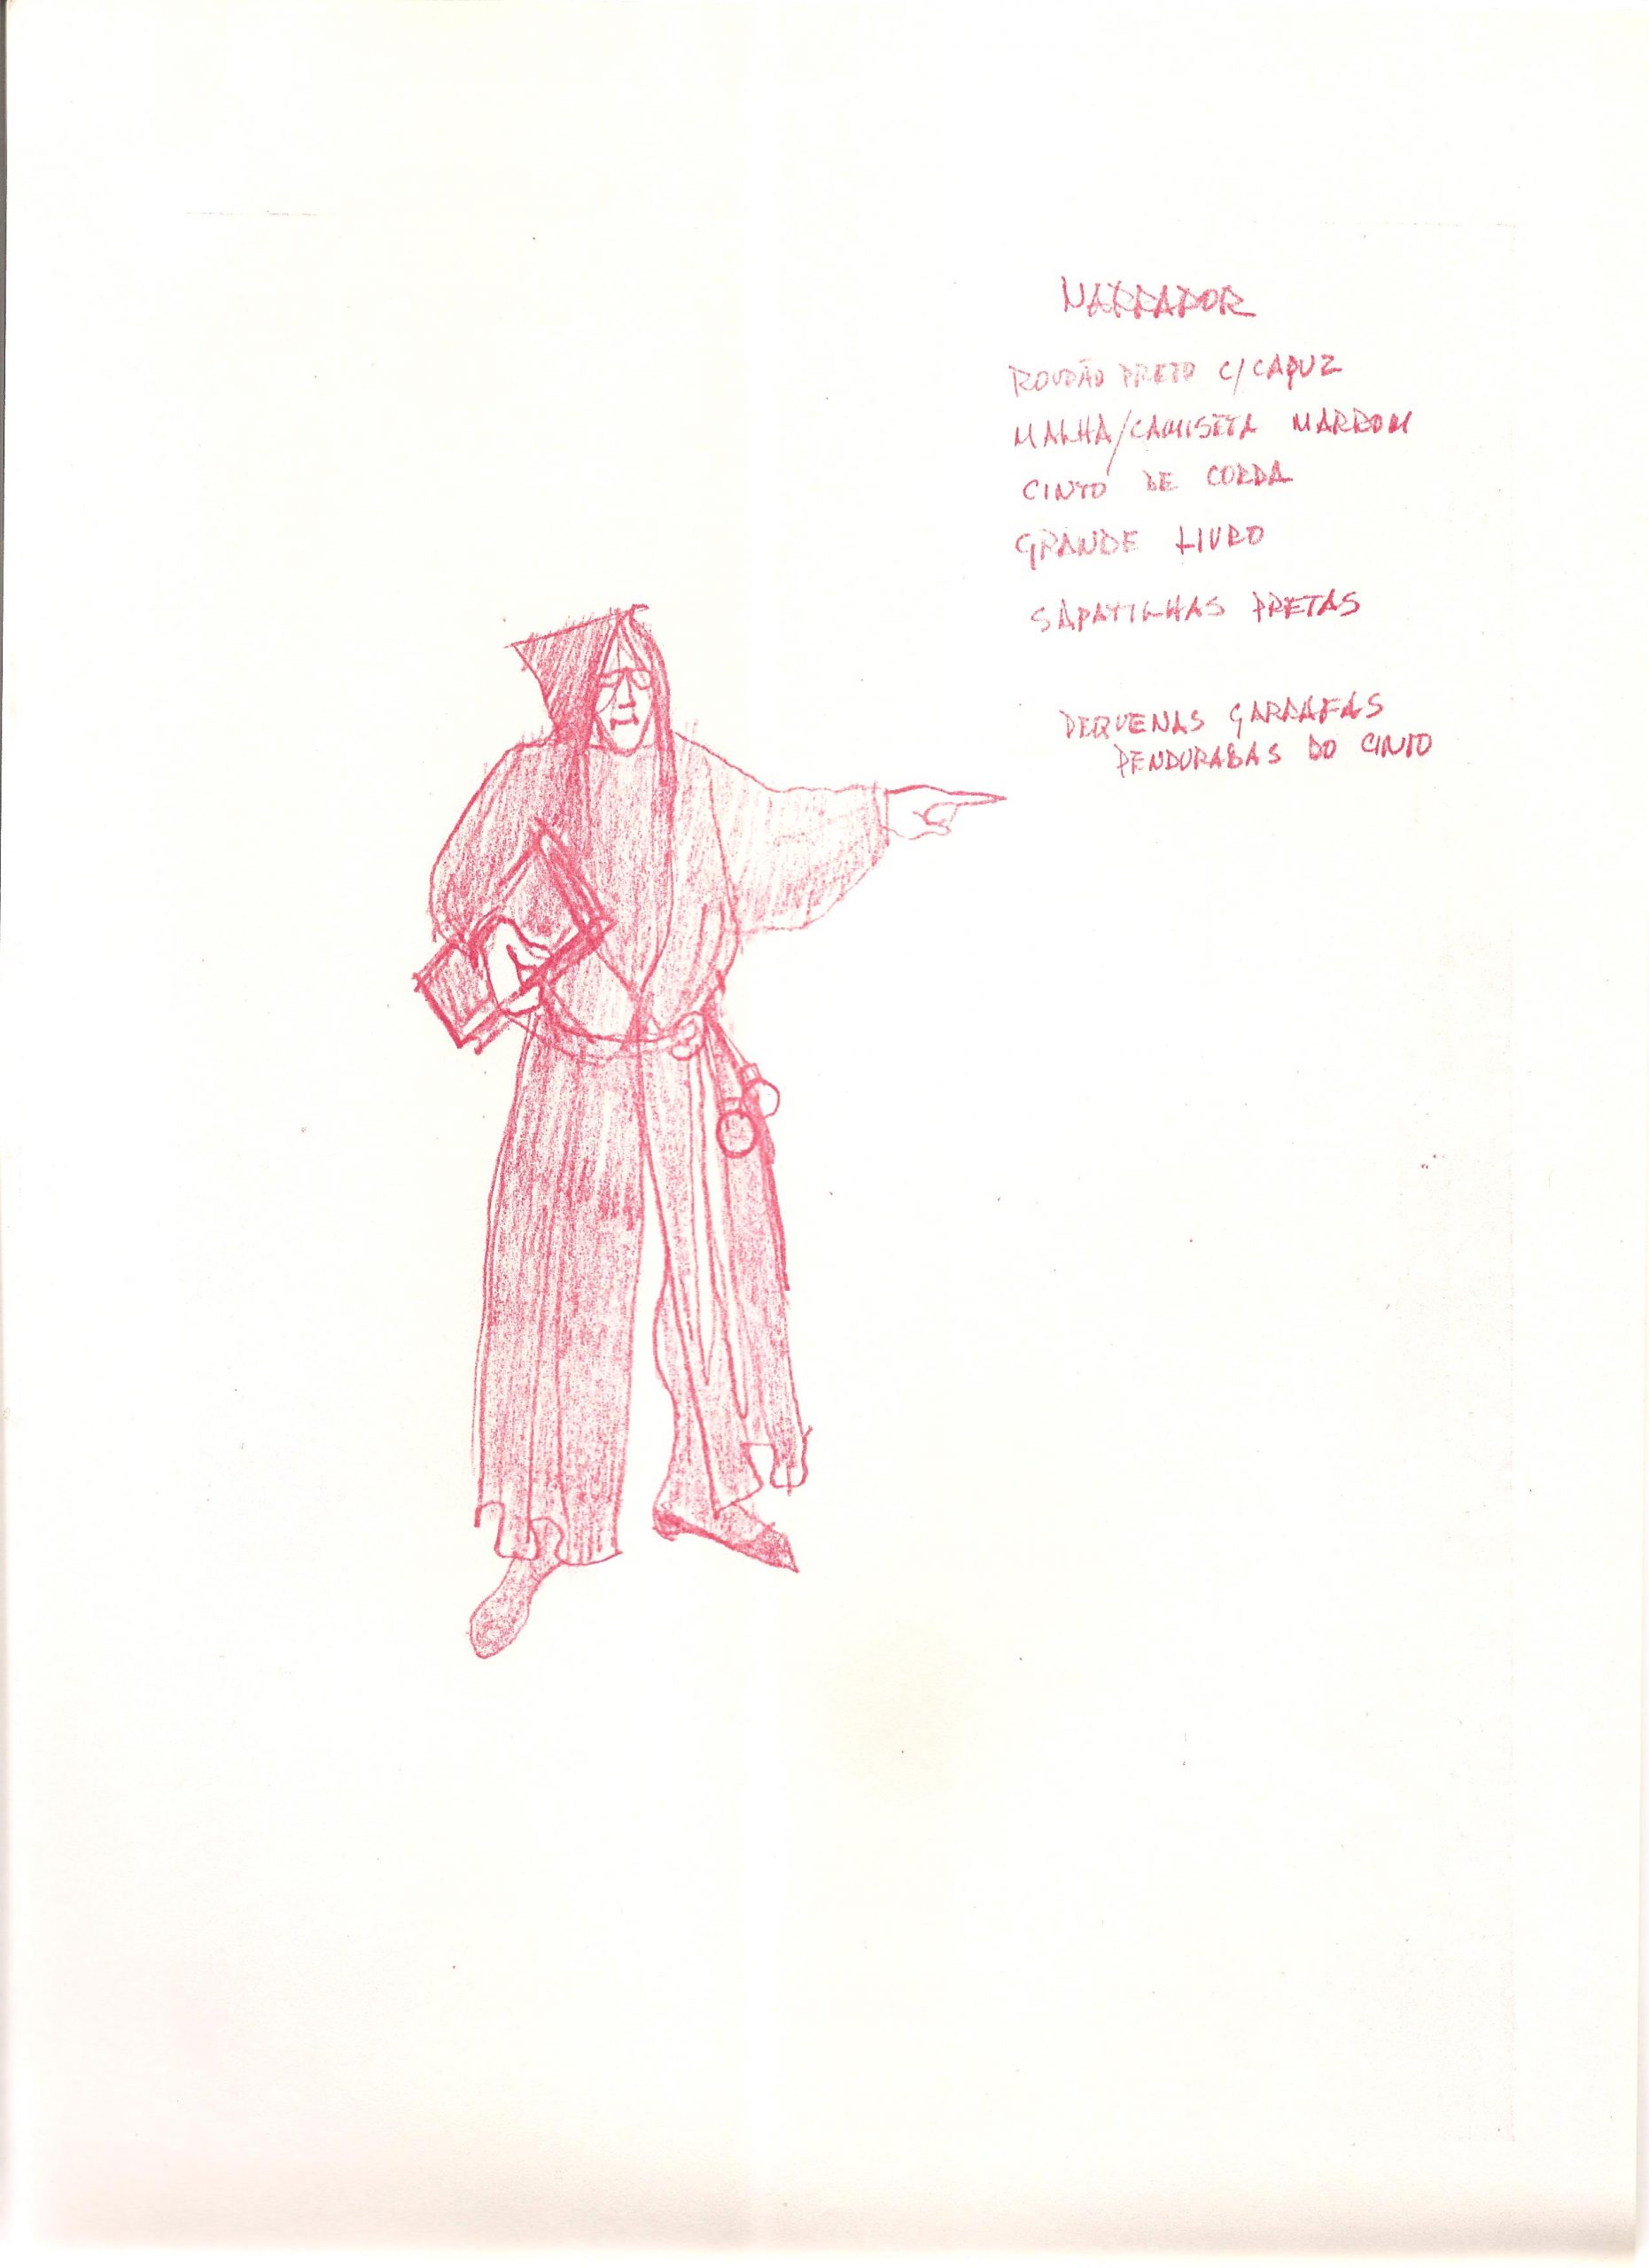 NARRADOR
ROUPÃO PRETO C/CAPUZ
MALHA/CAMISETA MARROM
CINTO DE CORDA
GRANDE LIVRO
SAPATILHAS PRETAS
PEQUENAS GARRAFAS
PENDURADAS DO CINTO